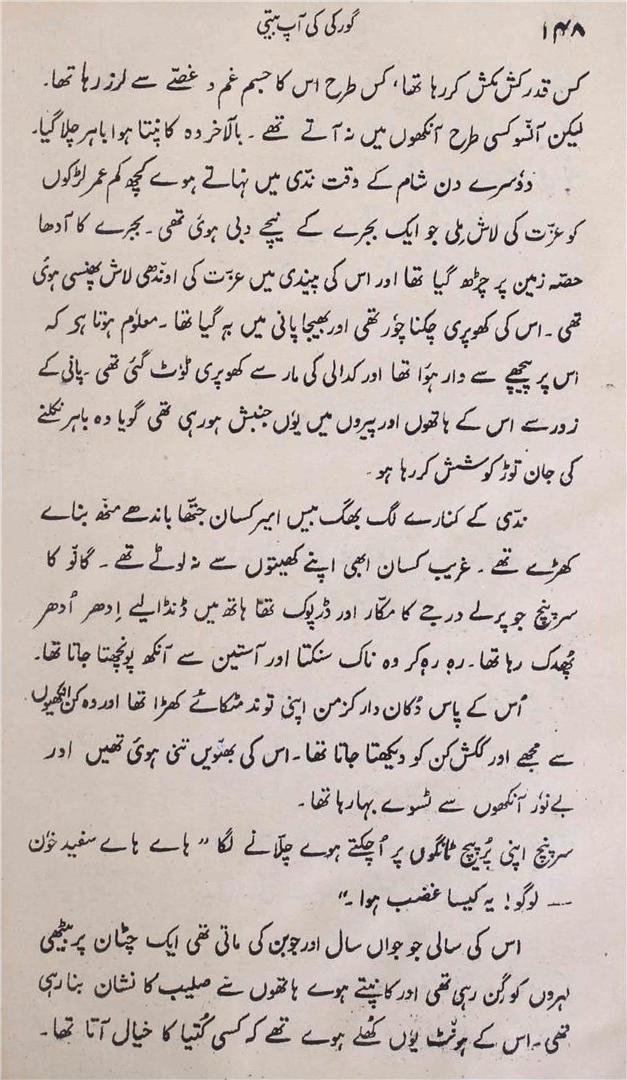 ۱۴۸ گورکی کی آپ بیتی
کس قدر کش مکش کر رہا تھا، کس طرح اس کا جسم غم و غصّے سے لرز رہا تھا۔
لیکن آنسو کسی طرح آنکھوں میں نہ آتے تھے۔ بالآخر وہ کانپتا ہوا باہر چلا گیا۔
دوٗسرے دن شام کے وقت ندّی میں نہاتے ہوے کچھ کم عمر لڑکوں
کو عزّت کی لاش ملی جو ایک بجرے کے نیچے دبی ہوئی تھی۔ بجرے کا آدھا
حصّہ زمین پر چڑھ گیا تھا اور اس کی پیندی میں عزّت کی اوندھی لاش پھنسی ہوئی
تھی۔ اس کی کھوپری چکنا چوٗر تھی اور بھیجا پانی میں بہ گیا تھا۔ معلوٗم ہوتا ہو کہ
اس پر پیچھے سے وار ہوٗا تھا اور کدالی کی مار سے کھوپری ٹوٗٹ گئی تھی۔ پانی کے
زور سے اس کے ہاتھوں اور پیروں میں یوٗں جنبش ہو رہی تھی گویا وہ باہر نکلنے
کی جان توڑ کوشش کر رہا ہو۔
ندّی کے کنارے لگ بھگ بیس امیر کسان جتھّا باندھے منھ بناے
کھڑے تھے۔ غریب کسان ابھی اپنے کھیتوں سے نہ لوٹے تھے۔ گانْو کا
سرپنچ جو پرلے درجے کا مکّار اور ڈرپوک تھا ہاتھ میں ڈنڈا لیے اِدھر اُدھر
پھُدک رہا تھا۔ رہ رہ کر وہ ناک سنکتا اور آستین سے آنکھ پونچھتا جاتا تھا۔
اُس کے پاس دُکان دار کزمن اپنی توند مٹکائے کھڑا تھا اور وہ کن انکھیوں
سے مجھے اور ککش کن کو دیکھتا جاتا تھا۔ اس کی بھنویں تنی ہوئی تھیں اور
بے نوٗر آنکھوں سے ٹسوے بہا رہا تھا۔
سرپنچ اپنی پُرپیچ ٹانگوں پر اُچکتے ہوے چلّانے لگا ”ہاے ہاے سفید خوٗن
— لوگو! یہ کیسا غضب ہوا۔“
اس کی سالی جو جواں سال اور جوبن کی ماتی تھی ایک چٹان پر بیٹھی
لہروں کو گن رہی تھی اور کانپتے ہوے ہاتھوں سے صلیب کا نشان بنا رہی
تھی۔ اس کے ہونٹ یوٗں کھُلے ہوے تھے کہ کسی کُتیا کا خیال آتا تھا۔